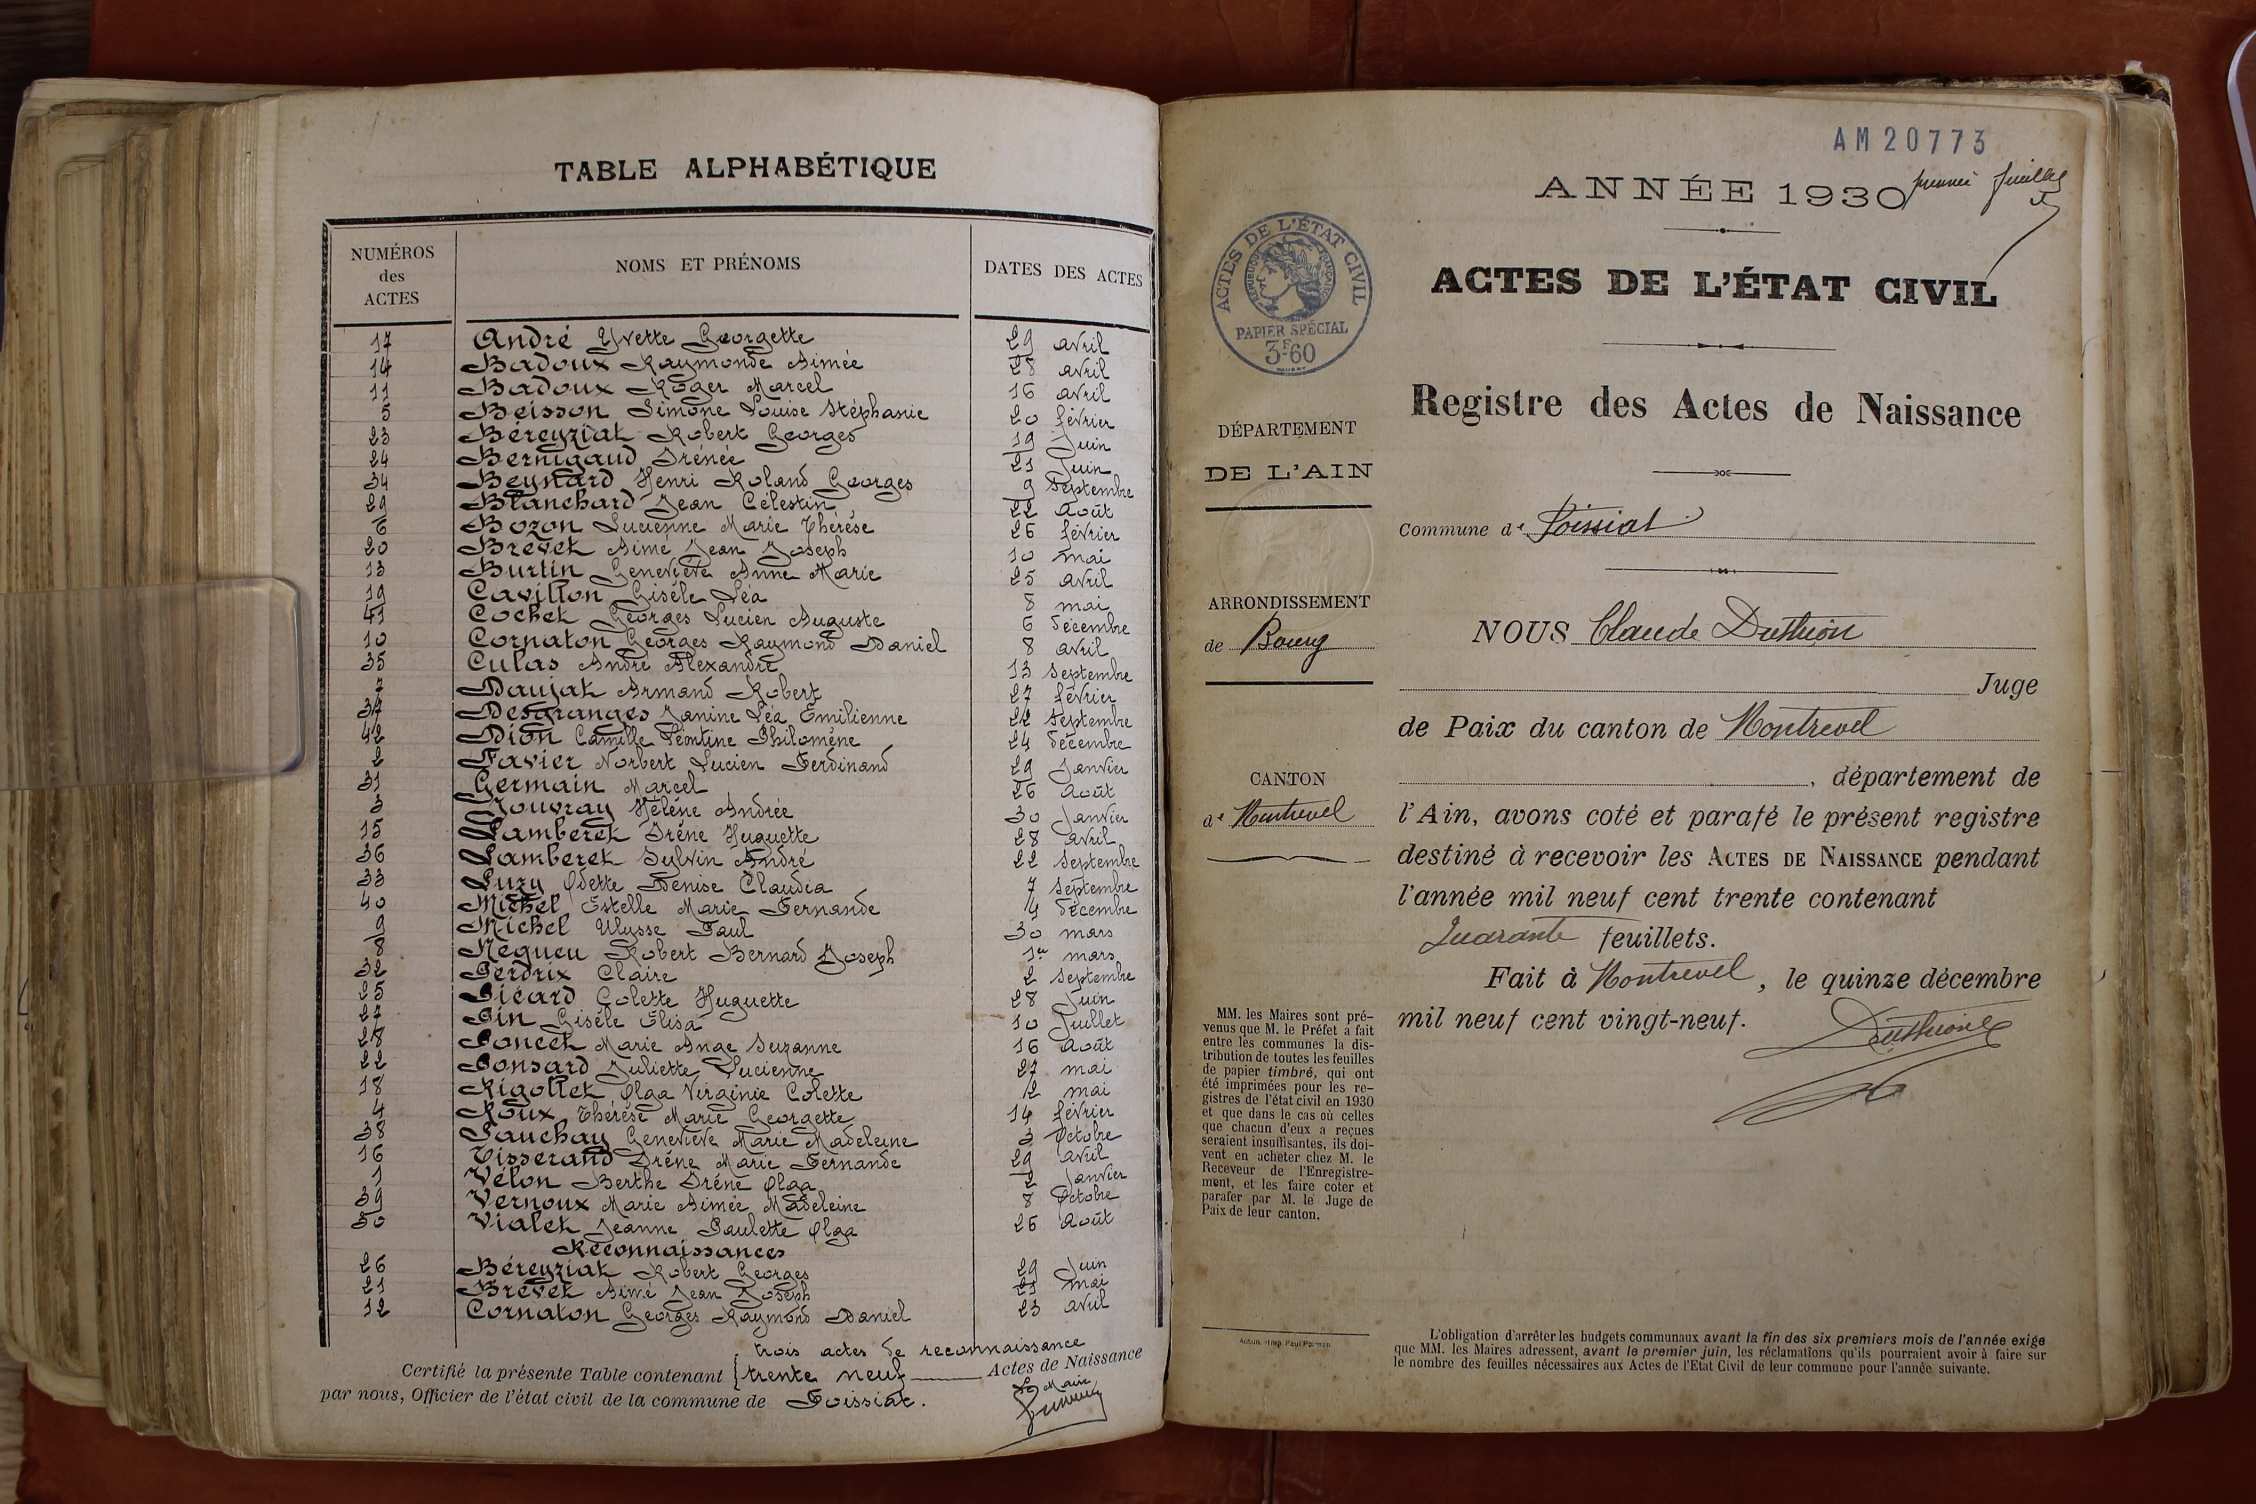 TABLE ALPHABÉTIQUE
NUMÉROS des ACTES NOMS ET PRÉNOMS DATES DES ACTES
17 André Yvette Georgette 29 avril
14 Badoux Raymonde Aimée 28 avril
11 Badoux Roger Marcel 16 avril
5 Beisson Simone Louise Stéphanie 20 février
23 Béreyziat Robert Georges 19 Juin
24 Bernigaud Irénée 21 Juin
34 Beynard Henri Roland Georges 9 Septembre
29 Blanchard Jean Célestin 22 Août
6 Bozon Lucienne Marie Thérèse 26 février
20 Brevet Aimé Jean Joseph 10 mai
13 Burtin Geneviève Anne Marie 25 avril
19 Cavillon Gisèle Léa 8 mai
41 Cochet Georges Lucien Auguste 6 décembre
10 Cornaton Georges Raymond Daniel 8 avril
35 Culas André Alexandre 13 septembre
7 Daujat Armand Robert 27 février
37 Desgranges Janine Léa Emilienne 22 septembre
42 Dion Camille Léontine Philomène 24 décembre
2 Favier Norbert Lucien Ferdinand 29 Janvier
31 Germain Marcel 26 Août
3 Jouvray Hélène Andrée 30 Janvier
15 Lamberet Irène Huguette 28 avril
36 Lamberet Sylvin André 22 septembre
33 Luzy Odette Denise Claudia 7 septembre
40 Michel Estelle Marie Fernande 4 décembre
9 Michel Ulysse Paul 30 mars
8 Nequeu Robert Bernard Joseph 1er mars
32 Perdrix Claire 2 septembre
25 Picard Colette Huguette 28 Juin
27 Pin Gisèle Elisa 10 Juillet
28 Poncet Marie Ange Suzanne 16 Août
22 Ponsard Juliette Lucienne 27 mai
18 Rigollet Olga Virginie Colette 2 mai
4 Roux Thérèse Marie Georgette 14 février
38 Sauchay Geneviève Marie Madeleine 3 Octobre
16 Tisserand Irène Marie Fernande 29 avril
1 Vélon Berthe Irène Olga 2 Janvier
39 Vernoux Marie Aimée Madeleine 8 Octobre
30 Vialet Jeanne Paulette Olga 26 Août
Reconnaissances
26 Béreyziat Robert Georges 29 Juin
21 Brevet Aimé Jean Joseph 21 mai
12 Cornaton Georges Raymond Daniel 23 avril
trois actes de reconnaissance
Certifié la présente Table contenant trente neuf Actes de Naissance
par nous, Officier de l'état civil de la commune de Foissiat.
Le Maire
AM 20773
ANNÉE 1930 premier feuillet
ACTES DE L'ÉTAT CIVIL
ACTES DE L'ÉTAT CIVIL
RÉPUBLIQUE FRANÇAISE
PAPIER SPÉCIAL
3F60
Registre des Actes de Naissance
DÉPARTEMENT
DE L'AIN
Commune de Foissiat
ARRONDISSEMENT
de Bourg
NOUS Claude Duthion
Juge
de Paix du canton de Montrevel
CANTON
de Montrevel
, département de
l'Ain, avons coté et parafé le présent registre
destiné à recevoir les ACTES DE NAISSANCE pendant
l'année mil neuf cent trente contenant
Quarante feuillets.
Fait à Montrevel, le quinze décembre
mil neuf cent vingt-neuf.
Duthion
MM. les Maires sont pré-
venus que M. le Préfet a fait
entre les communes la dis-
tribution de toutes les feuilles
de papier timbré, qui ont
été imprimées pour les re-
gistres de l'état civil en 1930
et que dans le cas où celles
que chacun d'eux a reçues
seraient insuffisantes, ils doi-
vent en acheter chez M. le
Receveur de l'Enregistre-
ment, et les faire coter et
parafer par M. le Juge de
Paix de leur canton.
L'obligation d'arrêter les budgets communaux avant la fin des six premiers mois de l'année exige
que MM. les Maires adressent, avant le premier juin, les réclamations qu'ils pourraient avoir à faire sur
le nombre des feuilles nécessaires aux Actes de l'Etat Civil de leur commune pour l'année suivante.